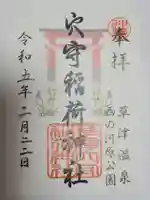 奉拝
草津温泉
西の河原公園
穴守稲荷神社
令和五年二月二二日